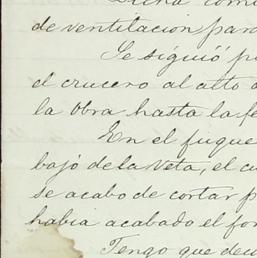 Dicha com
de ventilacion para
Se siguió p
el crucero al alto d
la obra hasta la fe
En el fuque
bajó de la veta, el c
se acabo de cortar p
habia acabado el for
Tengo que decir